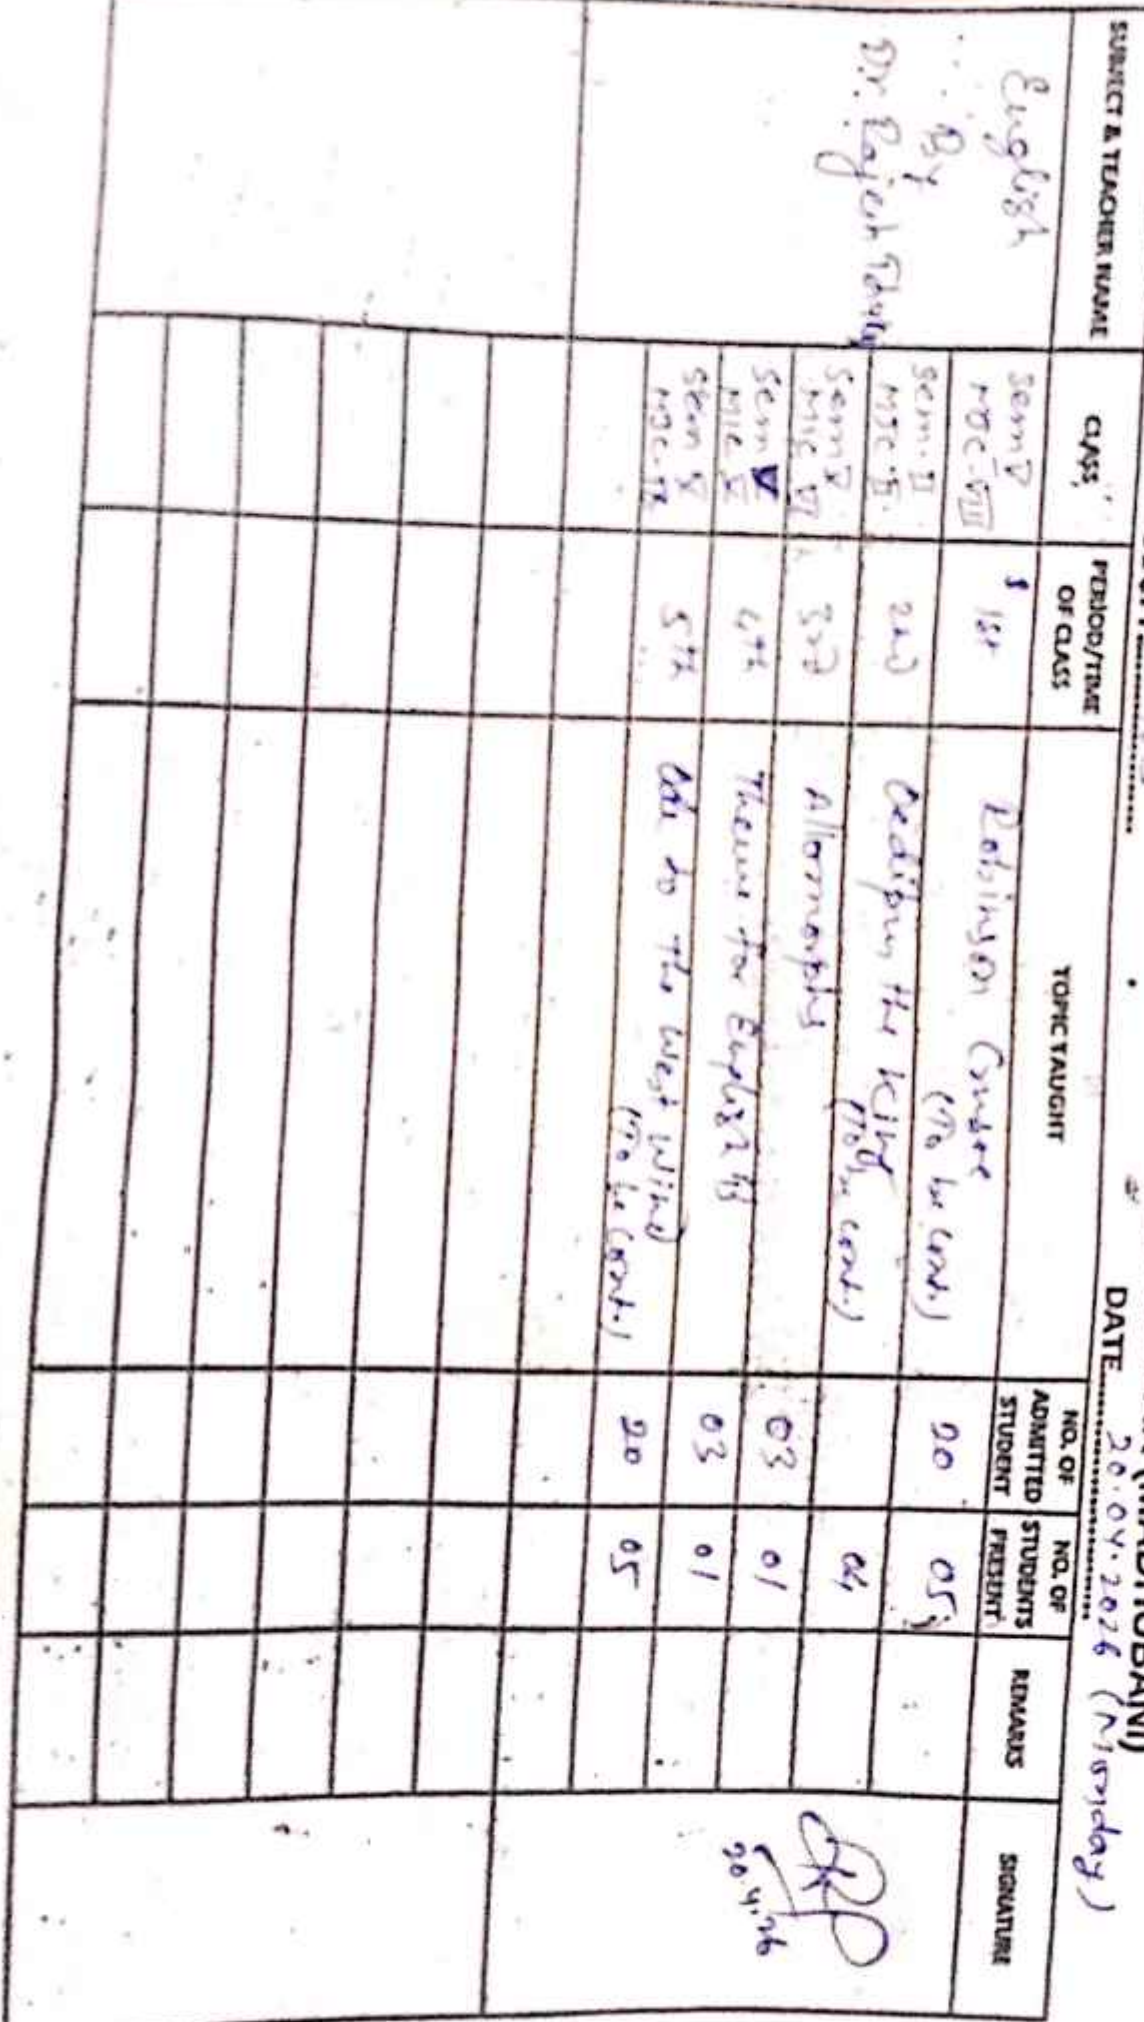 (MADHUBANI)
DATE 20.04.2026 (Monday)
SUBJECT & TEACHER NAME CLASS PERIOD/TIME OF CLASS TOPIC TAUGHT NO. OF ADMITTED STUDENT NO. OF STUDENTS PRESENT REMARKS SIGNATURE
English
By
Dr. Rajesh
Sem V
MJC-VII 1st Robinson Crusoe
(To be cont.) 20 05
Sem. II
MJC-II 2nd Oedipus the King
(To be cont.) 04
Sem V
MIC VI 3rd Allomorphs 03 01
Sem V
MIC V 4th Theme for English B 03 01
Sem V
MJC-IX 5th Ode to the West Wind
(To be cont.) 20 05
20.4.26